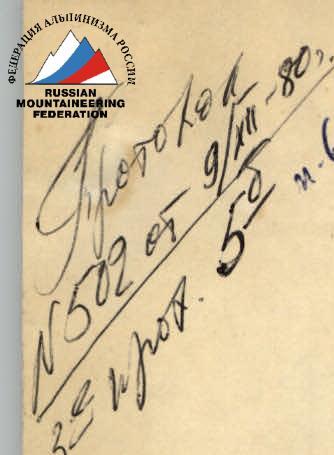 ФЕДЕРАЦИЯ АЛЬПИНИЗМА РОССИИ
RUSSIAN
MOUNTAINEERING
FEDERATION
Протокол
N502 от 9/XII-80г.
прот. 5б